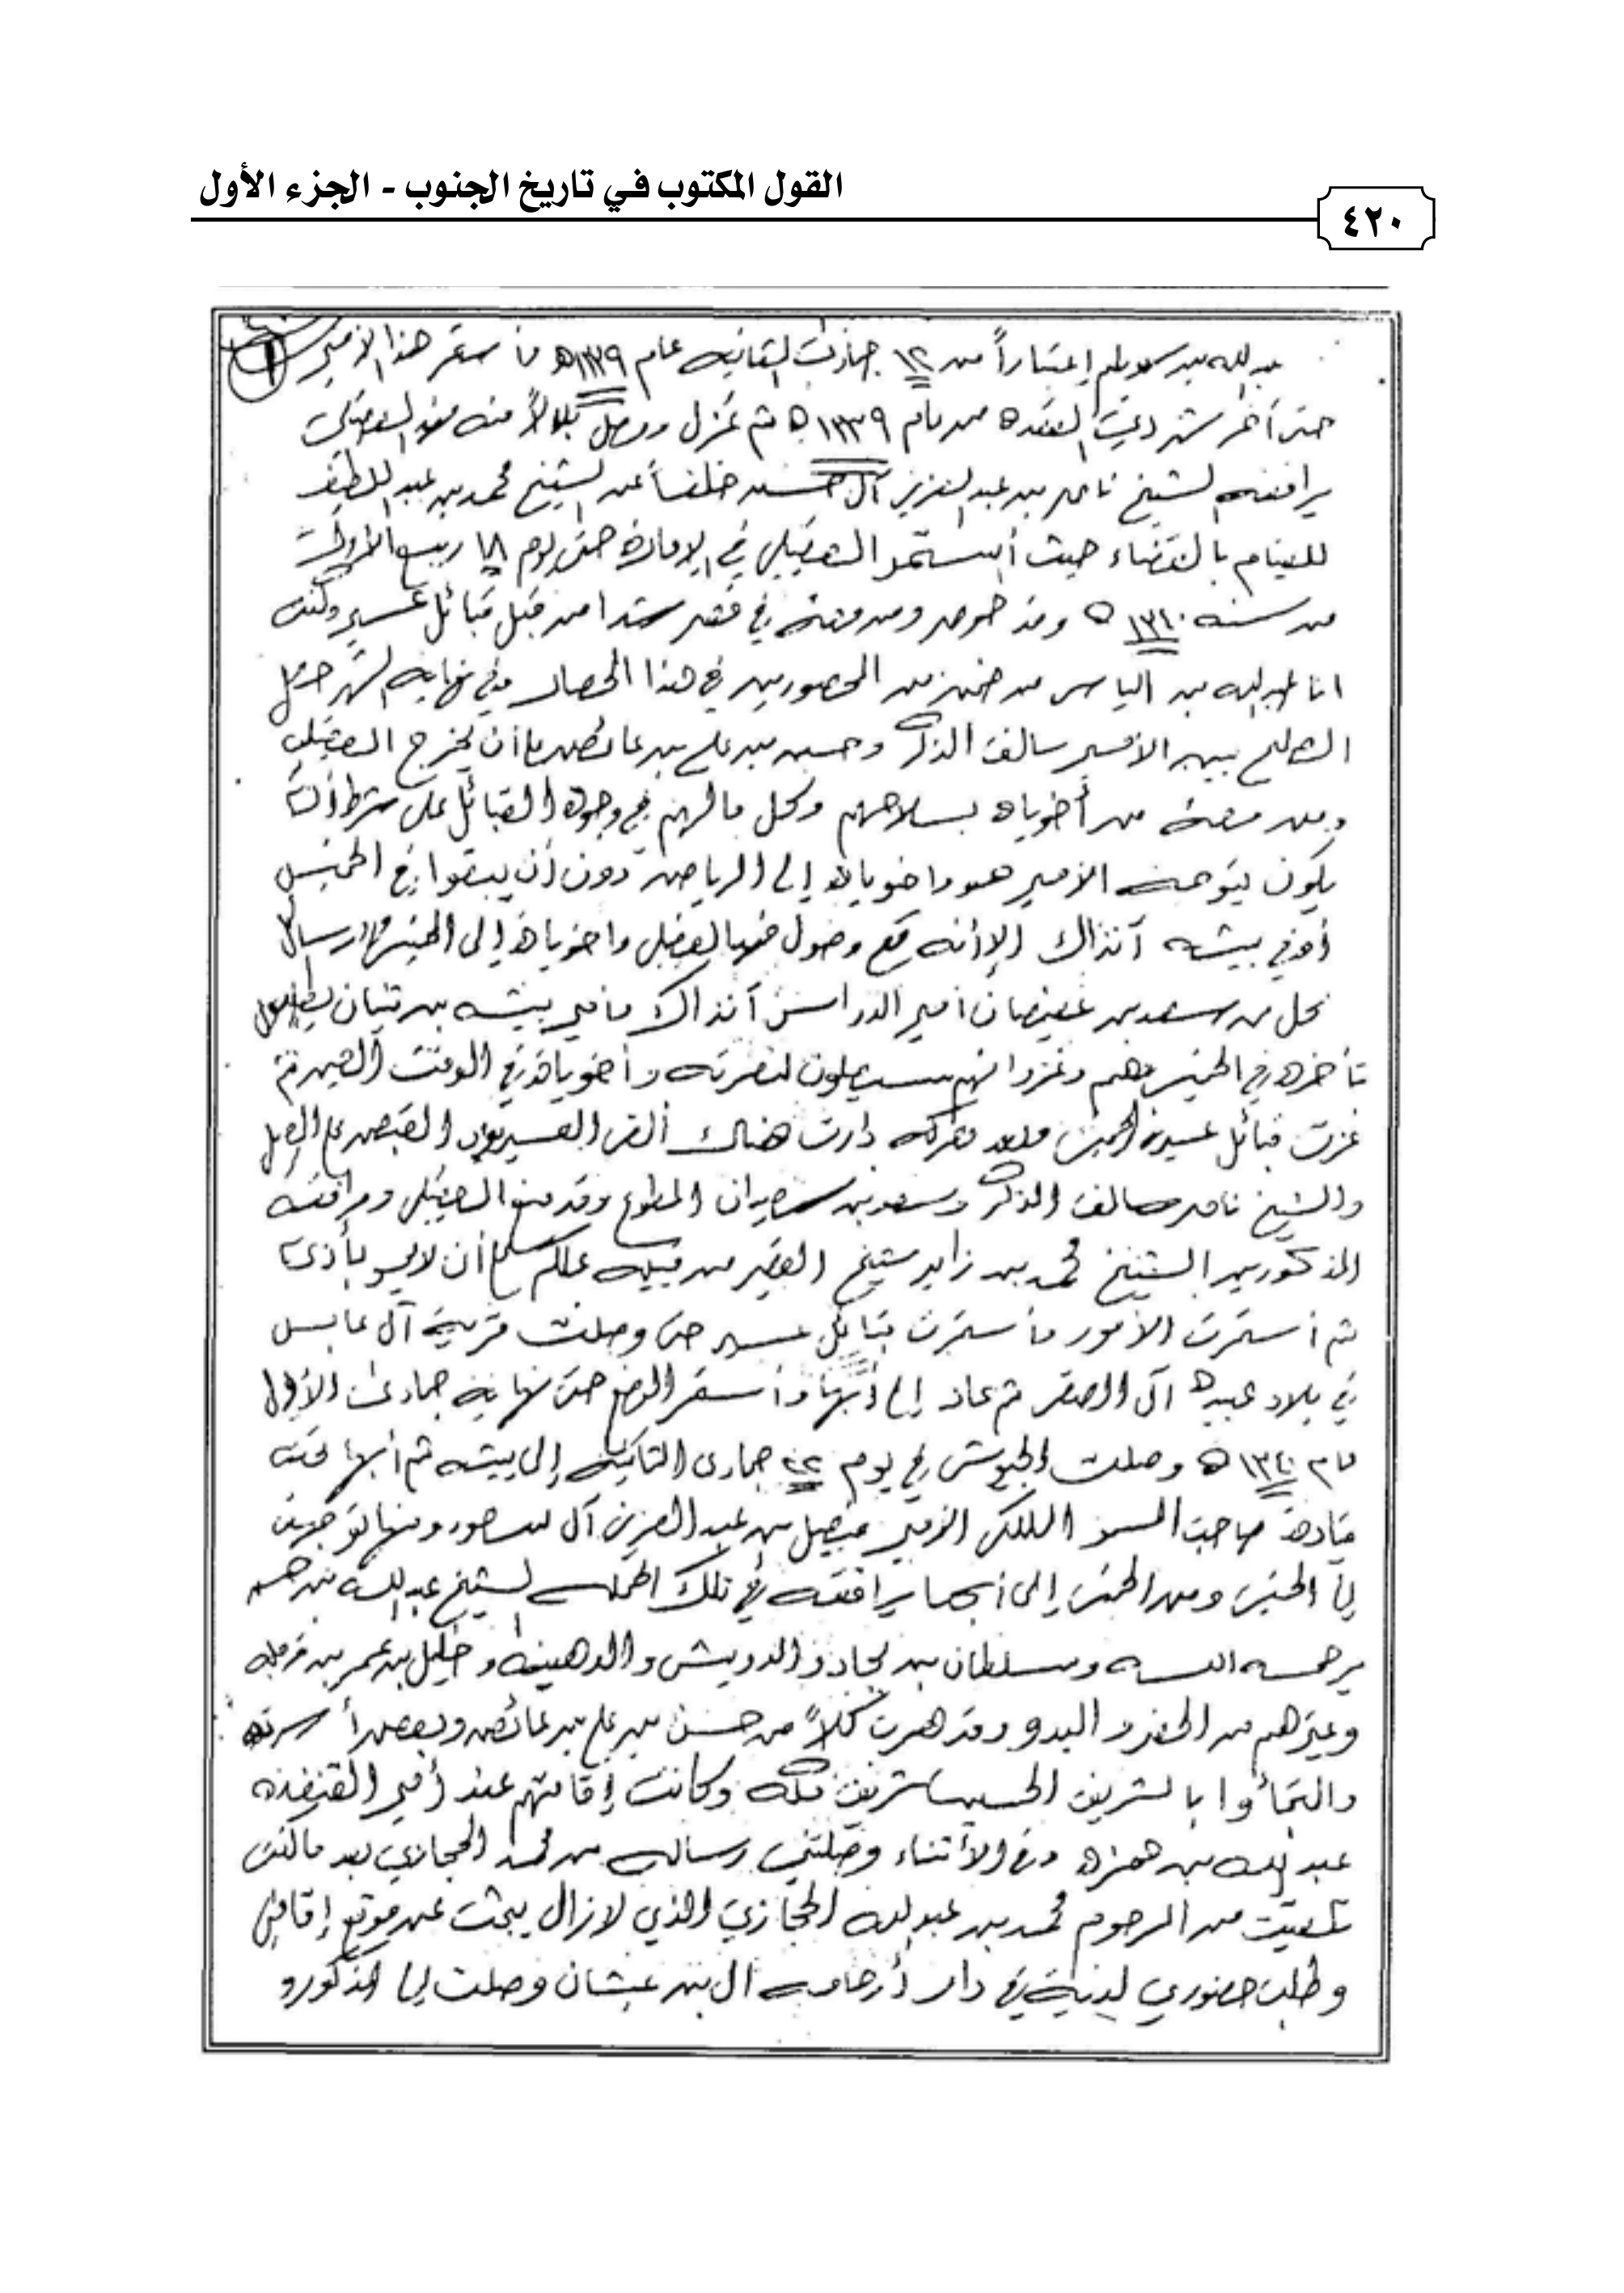 القول المكتوب في تاريخ الجنوب - الجزء الأول
٤٢٠
١
عبدالله بن سويلم إعتباراً من ١٢ جمادى الثانيه عام ١٣٣٩ه فأستقر هذا الأمير
حتى آخر شهر ذي القعده من عام ١٣٣٩ه ثم عزل ووصل بدلاً منه فهد العقيلي
يرافقه الشيخ ناصر بن عبدالعزيز آل حسين خلفاً عن الشيخ محمد بن عبداللطيف
للقيام بالقضاء حيث أستمر العقيلي في الإمارة حتى يوم ١٨ ربيع الأول
من سنه ١٣٤٠ه وقد حوصر ومن معه في قصر شدا من قبل قبائل عسير وكنت
انا عبدالله بن الياس من ضمن المحصورين في هذا الحصار وفي نهايه الشهر حصل
الصليح بين الأمير سالف الذكر وحسن بن علي بن عائض بأن يخرج العقيلي
ومن معه من أخوياه بسلاحهم وكل مالهم في وجوه القبائل على شرط أن
يكون يتوجه الأمير هو واخوياه إلى الرياض دون أن يبقوا في الخميس
أو في بيشه آنذاك إلا أنه مع وصول فهد العقيلي واخوياه إلى الخميس
كل من سعد بن عفيصان أمير الدواسر آنذاك وأمير بيشه بن ثنيان
تأخره في الخميس وهم وغزوانهم سيصلون لنصرته وأخوياه في الوقت الذي تم
غزت قبائل عسير الخميس وبعد معركه دارت هناك ألقى العسيريون القبض على العقيلي
والشيخ ناصر سالف الذكر وسعد بن المطوع وقد منع العقيلي ومرافقيه
المذكورين الشيخ محمد بن زايد شيخ من قبيله علكم أن لا يمسوا بأذى
ثم أستمرت الأمور فأستمرت قبائل عسير حتى وصلت قرية آل عابس
في بلاد عبيده آل الصقر ثم عاد إلى أبها وأستقر الوضع حتى نهاية جمادى الأولى
عام ١٣٤٠ه وصلت الجيوش في يوم ٢٢ جمادى الثانيه إلى بيشه ثم أبها تحت
قيادة صاحب السمو الملكي الأمير فيصل بن عبدالعزيز آل سعود ومنها توجهت
إلى الخميس ومن الخميس إلى أبها يرافقه في تلك الحمله الشيخ عبدالله بن حسن
يرحمه الله وسلطان بن بجاد والدويش والدهينه وخليل بن عمر بن قرمله
وغيرهم من الحضر والبدو وقد هرب كلاً من حسن بن علي بن عائض وبعض أسرته
والتجأوا بالشريف الحسين شريف مكه وكانت إقامتهم عند أمير القنفذه
عبدالله بن حمزه وفي الأثناء وصلتني رساله من محمد الحجازي بعد ما كنت
تلقيت من المرحوم محمد بن عبدالله الحجازي الذي لازال يبحث عن موقع إقامتي
وطلب حضوري لديه في دار أرحامه آل بن عبشان وصلت إلى المذكور و